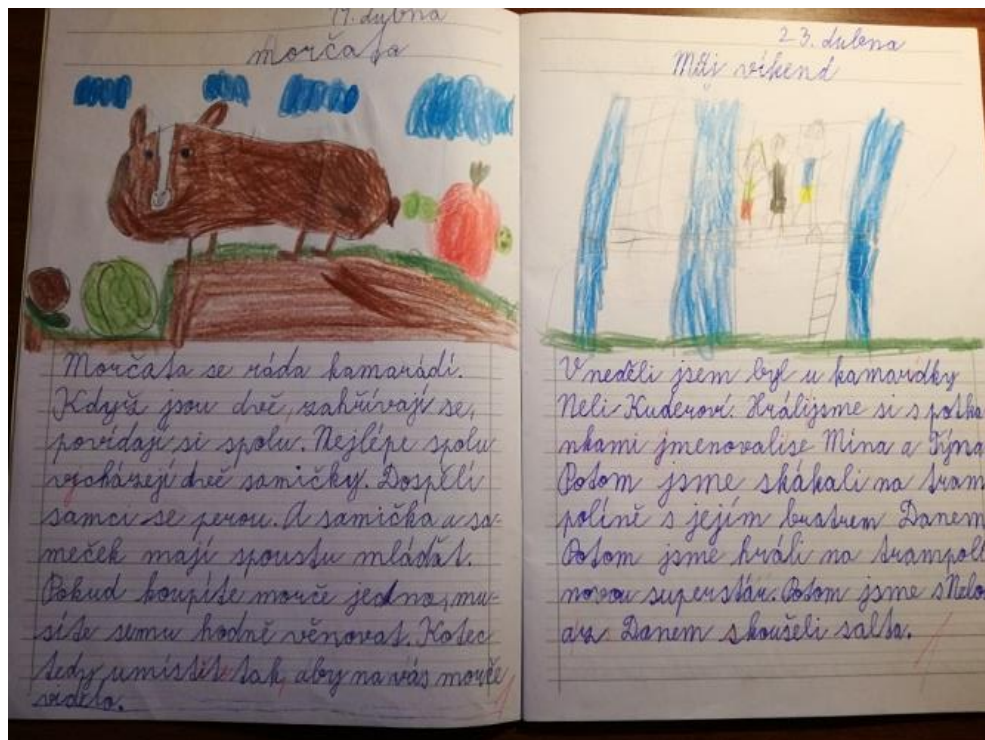 17. dubna
morčata
Morčata se ráda kamarádí.
Když jsou dvě, zahřívají se,
povídají si spolu. Nejlépe spolu
vycházejí dvě samičky. Dospělí
samci se perou. A samička a sa-
meček mají spoustu mláďat.
Pokud koupíte morče jedno, mu-
síte semu hodně věnovat. Kotec
tedy umístěte tak, aby na vás morče
vidělo.
23. dubna
Můj víkend
V neděli jsem byl u kamarádky
Neli Kuderoví. Hrálijsme si s potka
nkami jmenovalise Mína a Týna
Potom jsme skákali na tram
políně s jejím bratrem Danem
Potom jsme hráli na trampolí
novou superstár. Potom jsme sNelo
az Danem skoušeli salta.